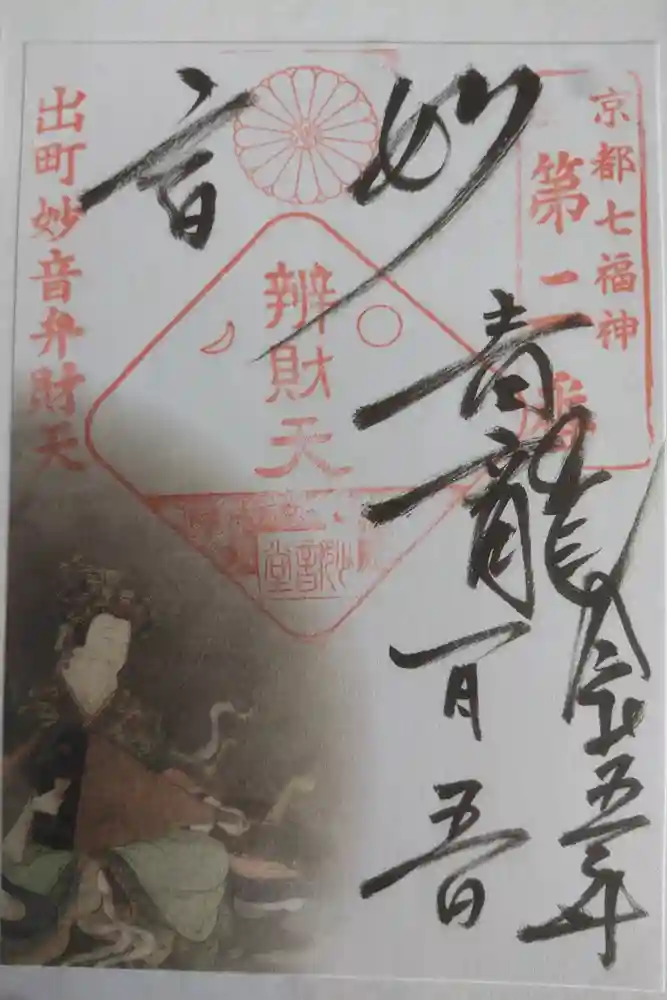 京都七福神
第一番
妙音
青龍
令和五年
一月五日
辨財天
妙音堂
出町妙音弁財天